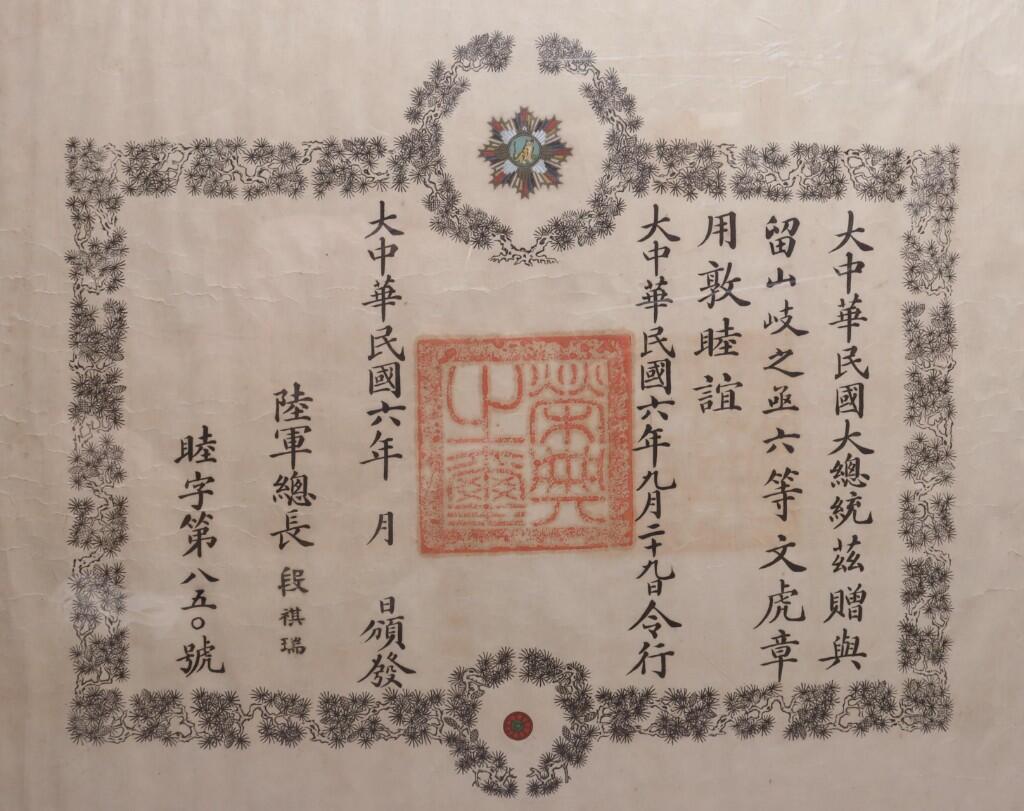 大中華民國大總統茲贈與
留山岐之亟六等文虎章
用敦睦誼
大中華民國六年九月二十九日令行
榮典之璽
大中華民國六年 月 日頒發
陸軍總長 段祺瑞
睦字第八五〇號